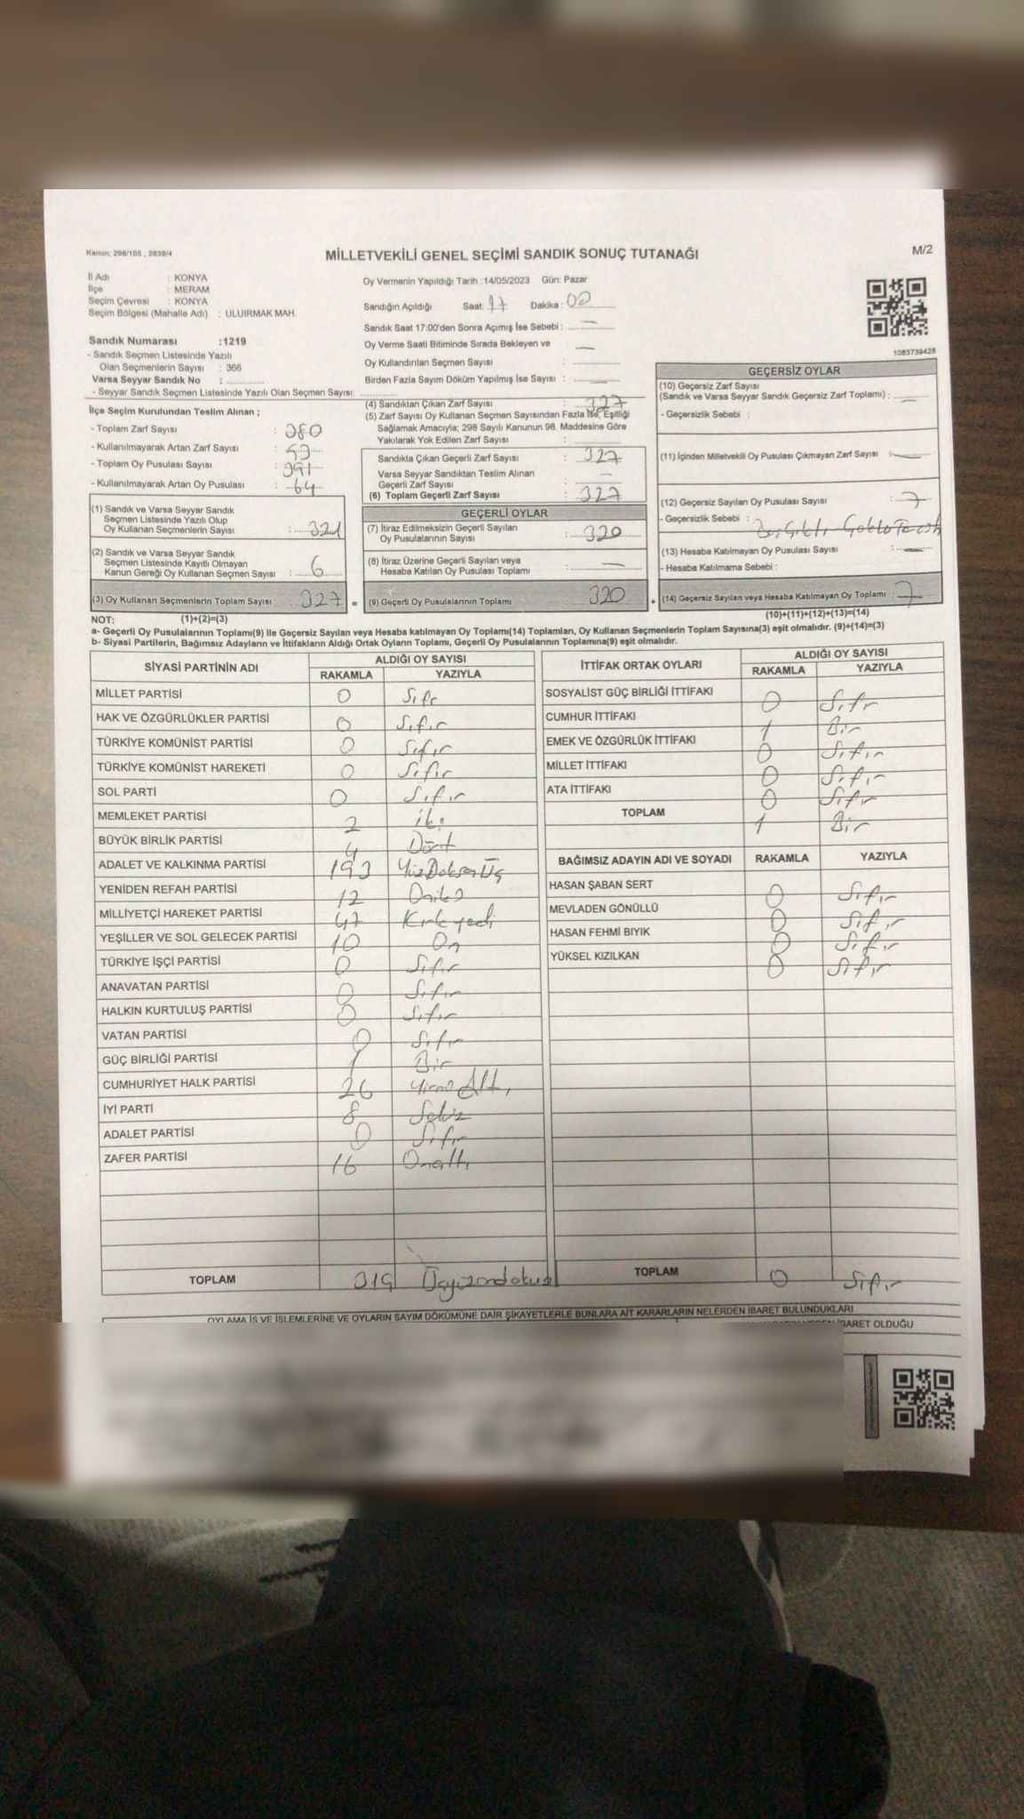 Kanun: 298/105 , 2839/4
MİLLETVEKİLİ GENEL SEÇİMİ SANDIK SONUÇ TUTANAĞI
M/2
İl Adı : KONYA
İlçe : MERAM
Seçim Çevresi : KONYA
Seçim Bölgesi (Mahalle Adı) : ULUIRMAK MAH.
Oy Vermenin Yapıldığı Tarih :14/05/2023 Gün: Pazar
Sandığın Açıldığı Saat: 17 Dakika: 00
Sandık Saat 17:00'den Sonra Açımış İse Sebebi : —
Oy Verme Saati Bitiminde Sırada Bekleyen ve —
Oy Kullandırılan Seçmen Sayısı
Birden Fazla Sayım Döküm Yapılmış İse Sayısı : —
1085739428
Sandık Numarası :1219
- Sandık Seçmen Listesinde Yazılı
Olan Seçmenlerin Sayısı : 366
Varsa Seyyar Sandık No :
- Seyyar Sandık Seçmen Listesinde Yazılı Olan Seçmen Sayısı:
İlçe Seçim Kurulundan Teslim Alınan ;
- Toplam Zarf Sayısı : 380
- Kullanılmayarak Artan Zarf Sayısı : 53
- Toplam Oy Pusulası Sayısı : 391
- Kullanılmayarak Artan Oy Pusulası : 64
(1) Sandık ve Varsa Seyyar Sandık
Seçmen Listesinde Yazılı Olup
Oy Kullanan Seçmenlerin Sayısı : 321
(2) Sandık ve Varsa Seyyar Sandık
Seçmen Listesinde Kayıtlı Olmayan
Kanun Gereği Oy Kullanan Seçmen Sayısı : 6
(3) Oy Kullanan Seçmenlerin Toplam Sayısı 327
(4) Sandıktan Çıkan Zarf Sayısı : 327
(5) Zarf Sayısı Oy Kullanan Seçmen Sayısından Fazla İse, Eşitliği
Sağlamak Amacıyla; 298 Sayılı Kanunun 98. Maddesine Göre
Yakılarak Yok Edilen Zarf Sayısı :
Sandıkta Çıkan Geçerli Zarf Sayısı : 327
Varsa Seyyar Sandıktan Teslim Alınan —
Geçerli Zarf Sayısı :
(6) Toplam Geçerli Zarf Sayısı : 327
GEÇERLİ OYLAR
(7) İtiraz Edilmeksizin Geçerli Sayılan
Oy Pusulalarının Sayısı : 320
(8) İtiraz Üzerine Geçerli Sayılan veya
Hesaba Katılan Oy Pusulası Toplamı : —
= (9) Geçerli Oy Pusulalarının Toplamı 320
GEÇERSİZ OYLAR
(10) Geçersiz Zarf Sayısı
(Sandık ve Varsa Seyyar Sandık Geçersiz Zarf Toplamı) : —
- Geçersizlik Sebebi :
(11) İçinden Milletvekili Oy Pusulası Çıkmayan Zarf Sayısı : —
(12) Geçersiz Sayılan Oy Pusulası Sayısı : 7
- Geçersizlik Sebebi :
(13) Hesaba Katılmayan Oy Pusulası Sayısı : —
- Hesaba Katılmama Sebebi :
+ (14) Geçersiz Sayılan veya Hesaba Katılmayan Oy Toplamı : 7
NOT: (1)+(2)=(3)
(10)+(11)+(12)+(13)=(14)
a- Geçerli Oy Pusulalarının Toplamı(9) ile Geçersiz Sayılan veya Hesaba katılmayan Oy Toplamı(14) Toplamları, Oy Kullanan Seçmenlerin Toplam Sayısına(3) eşit olmalıdır. (9)+(14)=(3)
b- Siyasi Partilerin, Bağımsız Adayların ve İttifakların Aldığı Ortak Oyların Toplamı, Geçerli Oy Pusulalarının Toplamına(9) eşit olmalıdır.
SİYASİ PARTİNİN ADI ALDIĞI OY SAYISI
RAKAMLA YAZIYLA
MİLLET PARTİSİ 0 Sıfır
HAK VE ÖZGÜRLÜKLER PARTİSİ 0 Sıfır
TÜRKİYE KOMÜNİST PARTİSİ 0 Sıfır
TÜRKİYE KOMÜNİST HAREKETİ 0 Sıfır
SOL PARTİ 0 Sıfır
MEMLEKET PARTİSİ 2 iki
BÜYÜK BİRLİK PARTİSİ 4 Dört
ADALET VE KALKINMA PARTİSİ 193 YüzDoksanÜç
YENİDEN REFAH PARTİSİ 12 Oniki
MİLLİYETÇİ HAREKET PARTİSİ 47 Kırkyedi
YEŞİLLER VE SOL GELECEK PARTİSİ 10 On
TÜRKİYE İŞÇİ PARTİSİ 0 Sıfır
ANAVATAN PARTİSİ 0 Sıfır
HALKIN KURTULUŞ PARTİSİ 0 Sıfır
VATAN PARTİSİ 0 Sıfır
GÜÇ BİRLİĞİ PARTİSİ 1 Bir
CUMHURİYET HALK PARTİSİ 26 Yirmi Altı
İYİ PARTİ 8 Sekiz
ADALET PARTİSİ 0 Sıfır
ZAFER PARTİSİ 16 Onaltı
TOPLAM 319 Üçyüzondokuz
İTTİFAK ORTAK OYLARI ALDIĞI OY SAYISI
RAKAMLA YAZIYLA
SOSYALİST GÜÇ BİRLİĞİ İTTİFAKI 0 Sıfır
CUMHUR İTTİFAKI 1 Bir
EMEK VE ÖZGÜRLÜK İTTİFAKI 0 Sıfır
MİLLET İTTİFAKI 0 Sıfır
ATA İTTİFAKI 0 Sıfır
TOPLAM 1 Bir
BAĞIMSIZ ADAYIN ADI VE SOYADI RAKAMLA YAZIYLA
HASAN ŞABAN SERT 0 Sıfır
MEVLADEN GÖNÜLLÜ 0 Sıfır
HASAN FEHMİ BIYIK 0 Sıfır
YÜKSEL KIZILKAN 0 Sıfır
TOPLAM 0 Sıfır
OYLAMA İŞ VE İŞLEMLERİNE VE OYLARIN SAYIM DÖKÜMÜNE DAİR ŞİKAYETLERLE BUNLARA AİT KARARLARIN NELERDEN İBARET BULUNDUKLARI
İBARET OLDUĞU